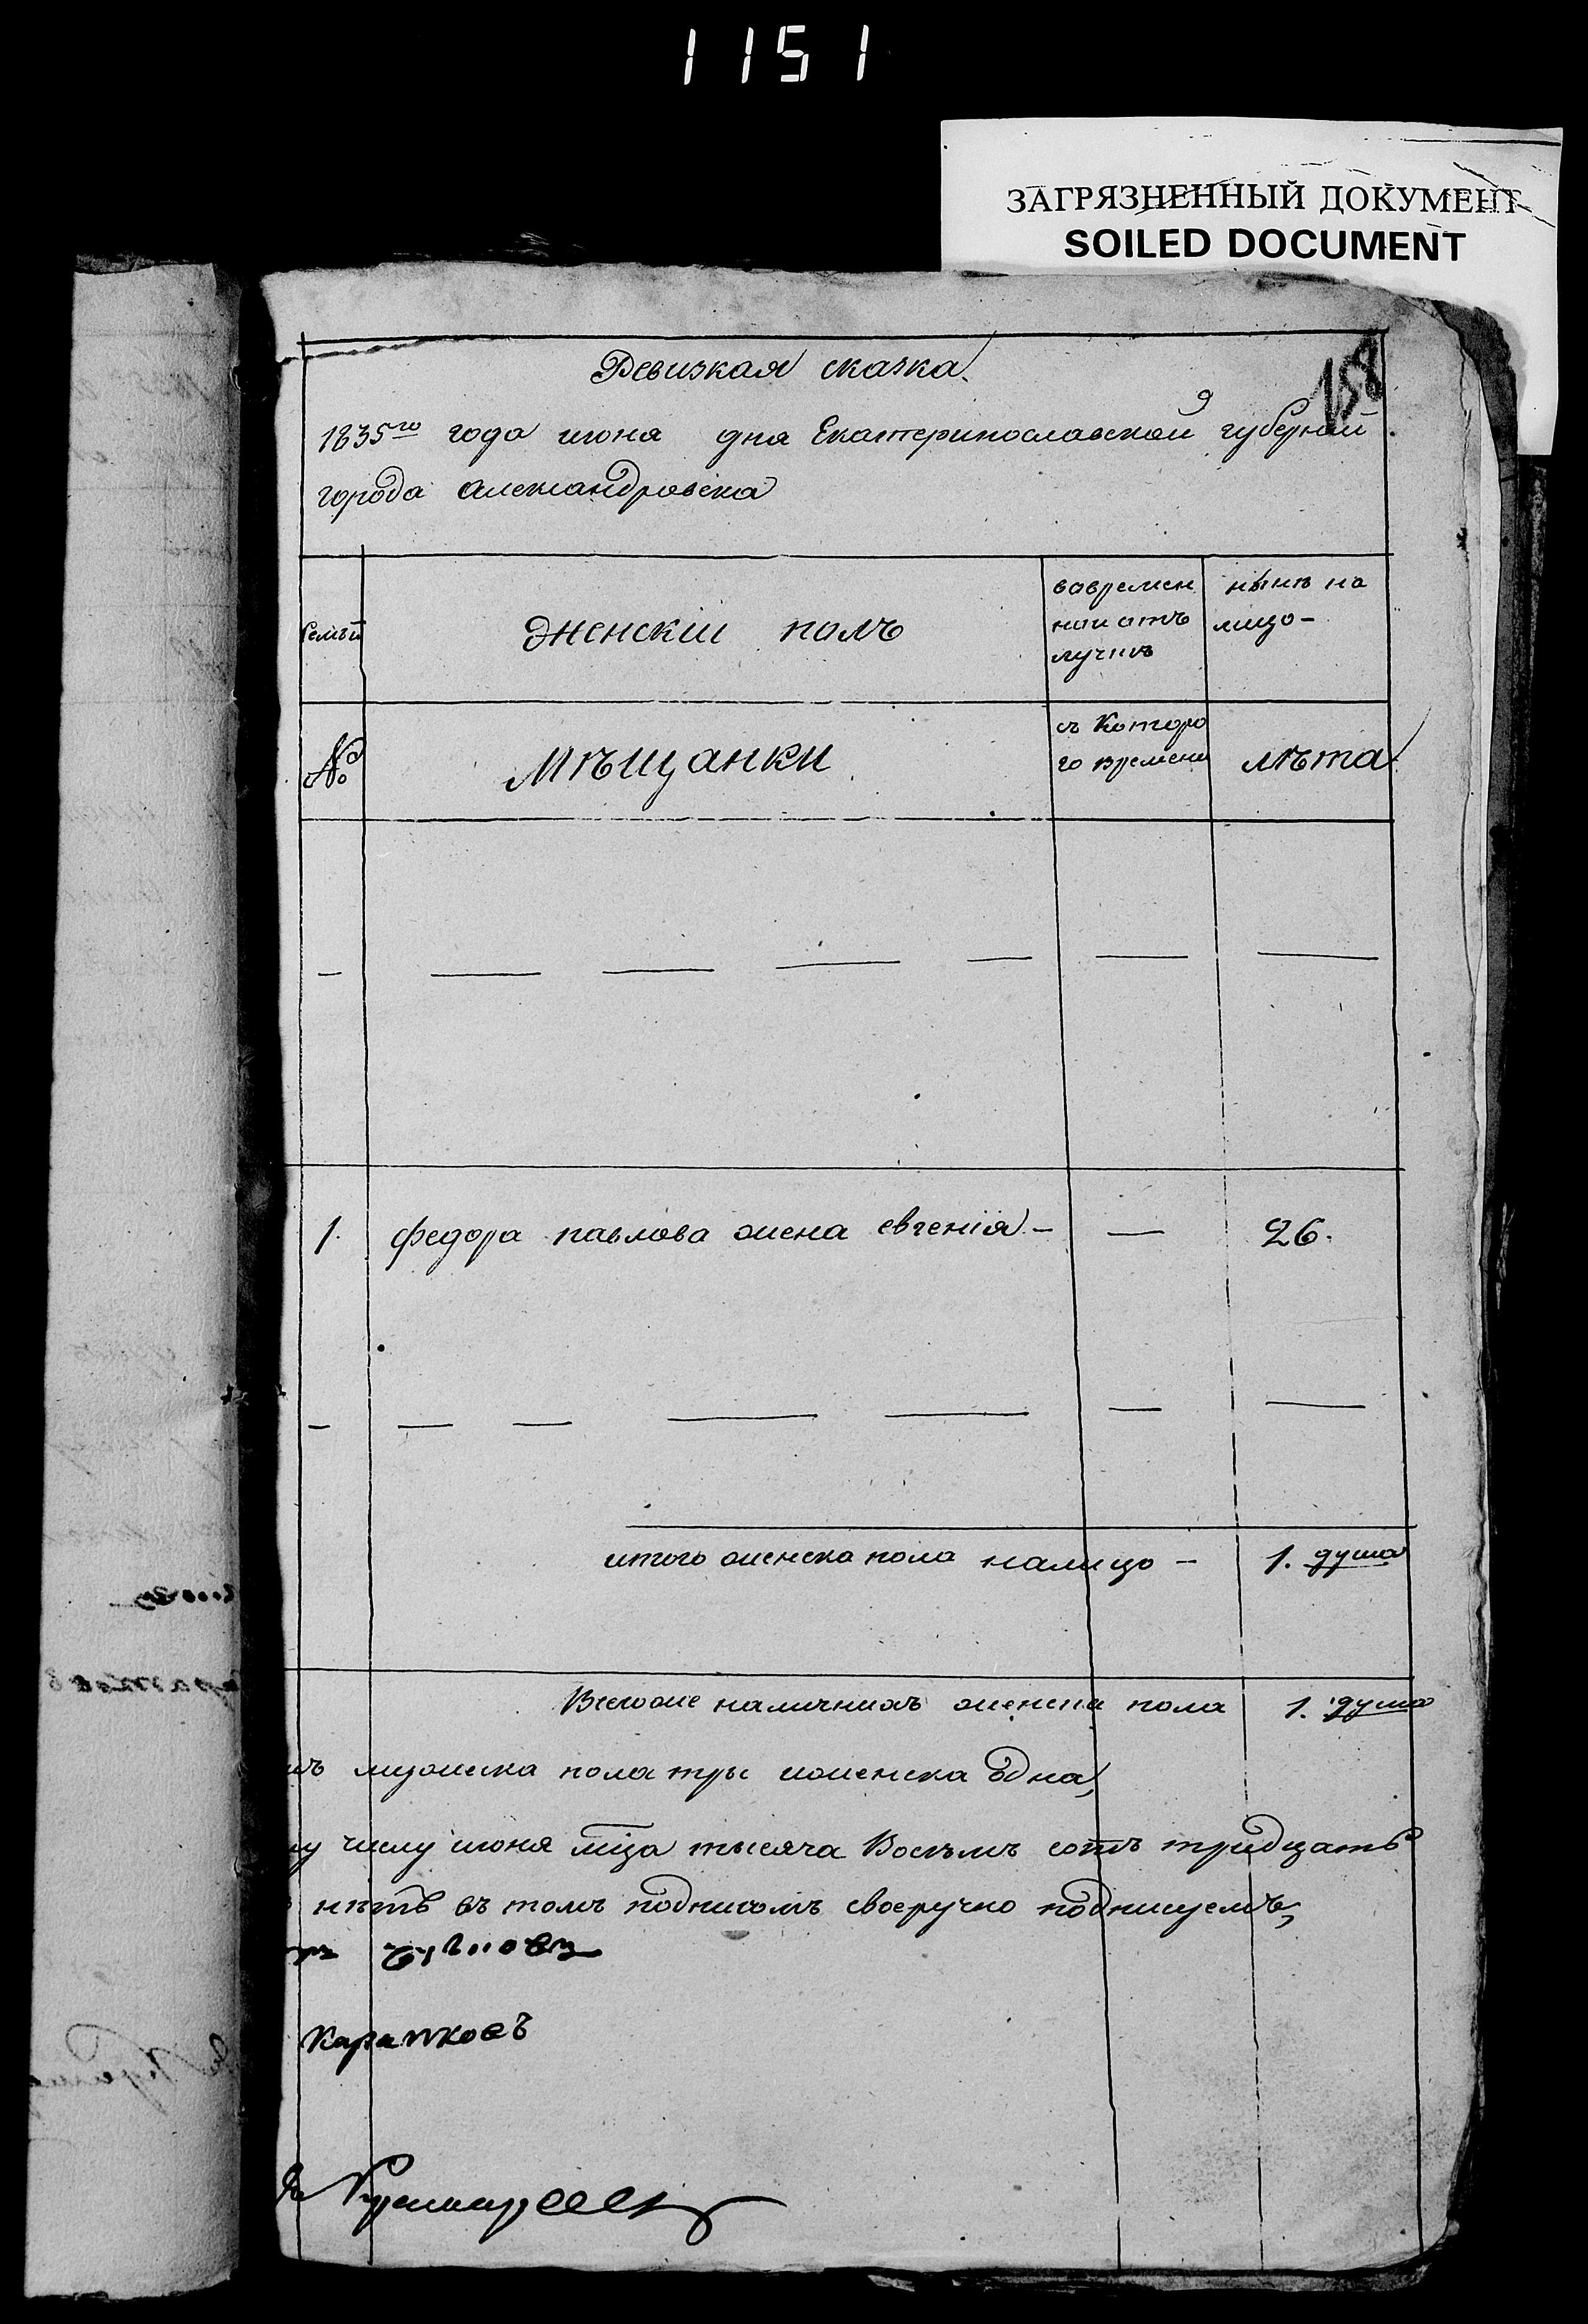 1151
ЗАГРЯЗНЕННЫЙ ДОКУМЕНТ
SOILED DOCUMENT
158
Ревизкая сказка
1835го года июня дня Екатеринославской губернии
города александровска
Семьи
женскій полъ
вовремен
ной отъ
лучкѣ
нынѣ на
лицо -
№
Мѣщанки
съ Которо
го времени
лѣта
1. федора павлова жена евгенія - — 26.
итого женска пола налицо - 1. душа
Всегоже наличнихъ женска пола 1. душа
мужеска пола три иженска одна,
числу июня мца тысяча Восемъ сотъ тридцать
въ томъ подписомъ своеручно подписуемъ,
Каратковъ